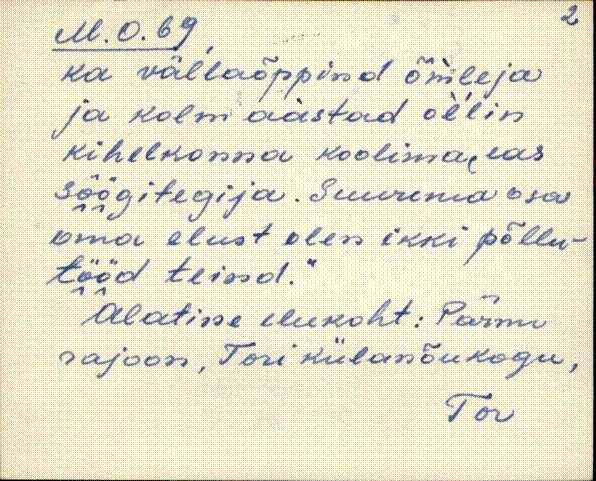 2
M.O.69
ka vällaõppind õm̀leja
ja kolm aàstad oèlin
kihelkonna koolimajas
söögitegija. Suurema osa
oma elust olen ikki põllu-
tööd teind."
Alatine elukoht: Pärnu
rajoon, Tori külanõukogu,
Tor